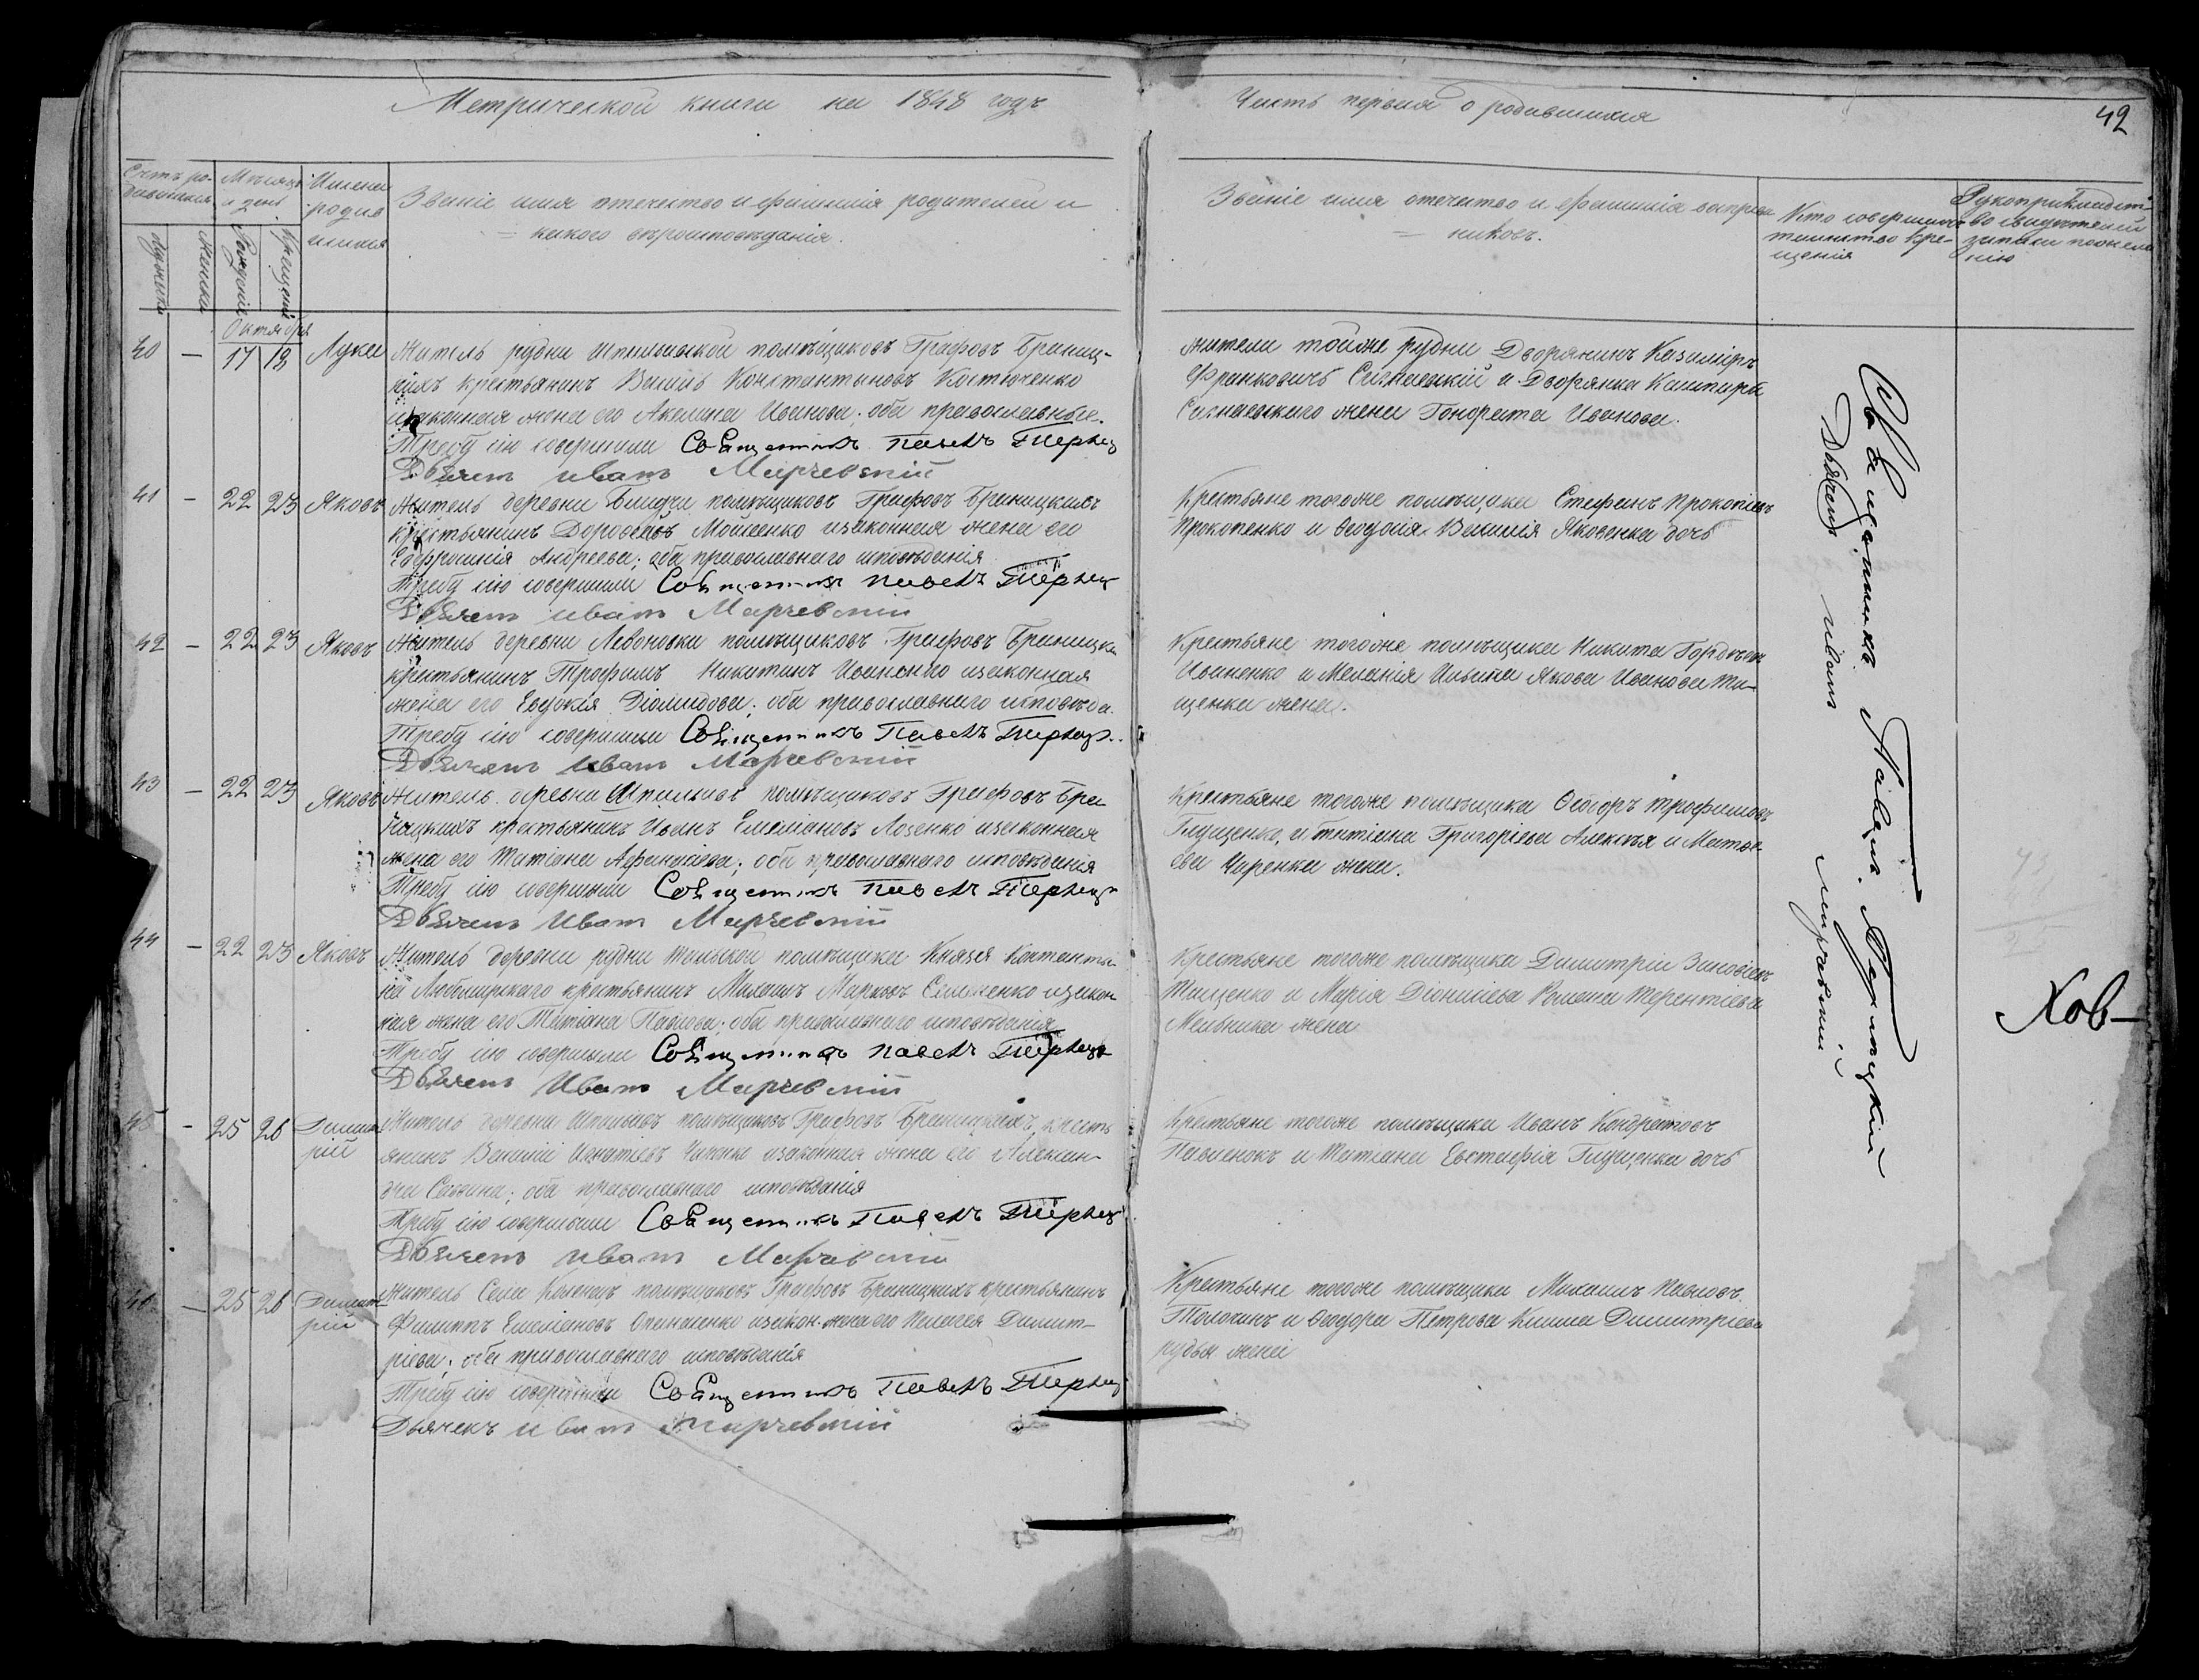 Метрической книги на 1848 годъ
Часть первая о родившихся
42
Счетъ ро-
дившихся
Мѣсяцъ
и день
Имена
родив
шихся
Званіе имя отечество и фамилія родителей и
какого вѣроисповѣданія.
Званіе имя отечество и фамилія воспріем
никовъ.
Кто совершалъ
таинство кре-
щенія
Рукоприкладст-
во свидѣтелей
записи по жела
нію
мужеска
женска
Рожденія
Крещенія
Октября
40 — 17 18 Лука
Житель рудни Шпилевской помѣщиковъ Графовъ Браниц-
кихъ крестьянинъ Константыновъ Костюченко
изаконная жена его Акелина Иванова; оба православные.
Требу сію совершали Священникъ Павелъ
Дьячекъ Иванъ Марчевскій
жители тойже рудни Дворянинъ Казиміръ
и Дворянка
жена Гонората Иванова.
41 — 22 23 Яковъ
Житель деревни помѣщиковъ Графовъ Браницкихъ
крестьянинъ Дорофѣй Мойсеенко изаконная жена его
Евфросинія Андреева; оба православнаго исповѣданія
Требу сію совершали Священникъ Павелъ
Дьячекъ Иванъ Марчевскій
Крестьяне тогоже помѣщика Стефанъ Прокопіевъ
Прокопенко и Феодосія Яковенка дочь
42 — 22 23 Яковъ
Житель деревни Леоновки помѣщиковъ Графовъ Браницки
крестьянинъ Трофимъ Никитинъ Иваненко изаконная
жена его Евдокія Діомидова; оба православнаго исповѣда.
Требу сію совершали Священникъ Павелъ
Дьячекъ Иванъ Марчевскій
Крестьяне тогоже помѣщика Никита Гордѣевъ
Иваненко и Меланія Якова Иванова Ти-
щенка жена.
43 — 22 23 Яковъ
Житель деревни Шпилевъ помѣщиковъ Графовъ Бра
ницкихъ крестьянинъ Иванъ Емеліановъ Лозенко изаконная
жена его Татіана Афанасіева; оба православнаго исповѣданія
Требу сію совершали Священникъ Павелъ
Дьячекъ Иванъ Марчевскій
Крестьяне тогоже помѣщика Ѳеодоръ Трофимовъ
Глущенко, и Татіана Григоріева Алексѣя Матве-
ева Чаренка жена.
44 — 22 23 Яковъ
Житель деревни рудни помѣщика Князя Контанты
на Любомирскаго крестьянинъ Михаилъ Марковъ Семененко изакон
ная жена его Татіана Павлова; оба православнаго исповѣданія
Требу сію совершали Священникъ Павелъ
Дьячекъ Иванъ Марчевскій
Крестьяне тогоже помѣщика Димитрій Зиновіевъ
Тищенко и Марія Діонисіева Романа Терентіева
Мельника жена
45 — 25 26 Димит
рій
Житель деревни Шпилевъ помѣщиковъ Графовъ Браницкихъ кресть
янинъ Василій Игнатіевъ изаконная жена его Алексан-
дра Саввина; оба православнаго исповѣданія
Требу сію совершали Священникъ Павелъ
Дьячекъ Иванъ Марчевскій
Крестьяне тогоже помѣщика Иванъ Кондратовъ
Павленокъ и Татіана Евстафія Глущенка дочь
46 — 25 26 Димит
рій
Житель Села помѣщиковъ Графовъ Браницкихъ крестьянинъ
Филиппъ Емеліановъ изакон. жена его Пелагея Димит-
ріева; оба православнаго исповѣданія
Требу сію совершали Священникъ Павелъ
Дьячекъ Иванъ Марчевскій
Крестьяне тогоже помѣщика Михаилъ Павловъ
и Феодора Петрова Димитріева
рудья жена
Священникъ Павелъ
Дьячекъ Иванъ Марчевскій